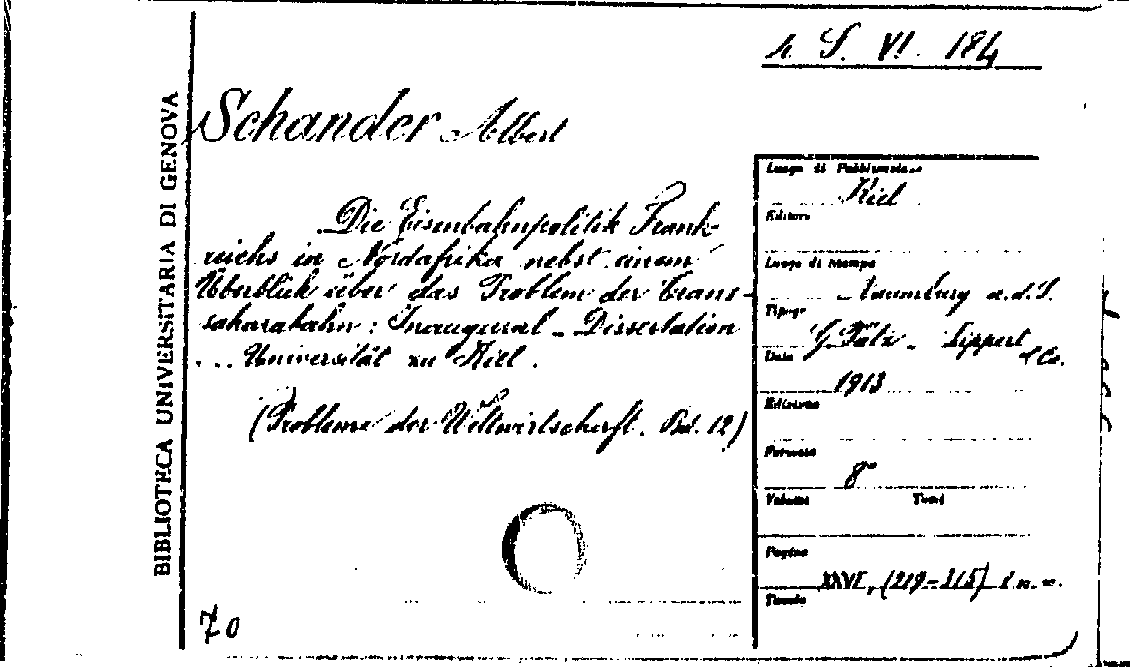 4. S. VI. 184
BIBLIOTECA UNIVERSITARIA DI GENOVA
Schander Albert
Die Eisenbahnpolitik Frank-
reichs in Nordafrika nebst einem
Überblick über das Problem der Trans-
saharabahn: Inaugural - Dissertation
... Universität zu Kiel.
(Probleme der Weltwirtschaft. Bd. 12)
70
Luogo di Pubblicazione
Kiel
Editore
Luogo di Stampa
Naumburg a.d.S.
Tipogr
G. Pätz - Lippert
& Co.
Data
1913
Edizione
Formato
8°
Volume Tomi
Pagine
XXVI, (219-315) 1 n.
Tavole